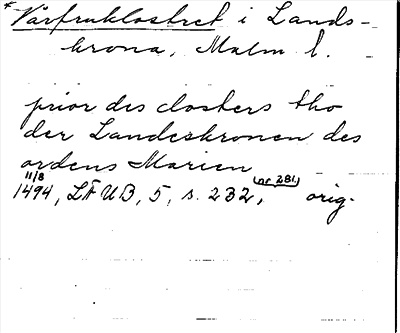 *Vårfruklostret i Lands-
krona, Malm l.
prior des closters tho
der Landeskronen des
ordens Marien
11/8 nr 281
1494, LÆUB, 5, s. 232, orig.